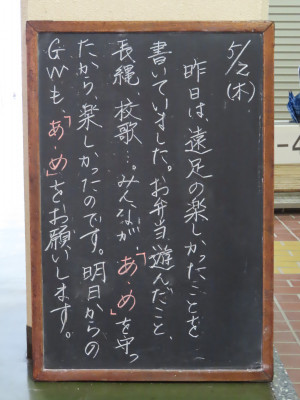 5/2(木)
昨日は、遠足の楽しかったことを
書いていました。お弁当、遊んだこと、
長縄、校歌…。みんなが、「あ・め」を守っ
たから、楽しかったのです。明日からの
GWも、「あ・め」をお願いします。